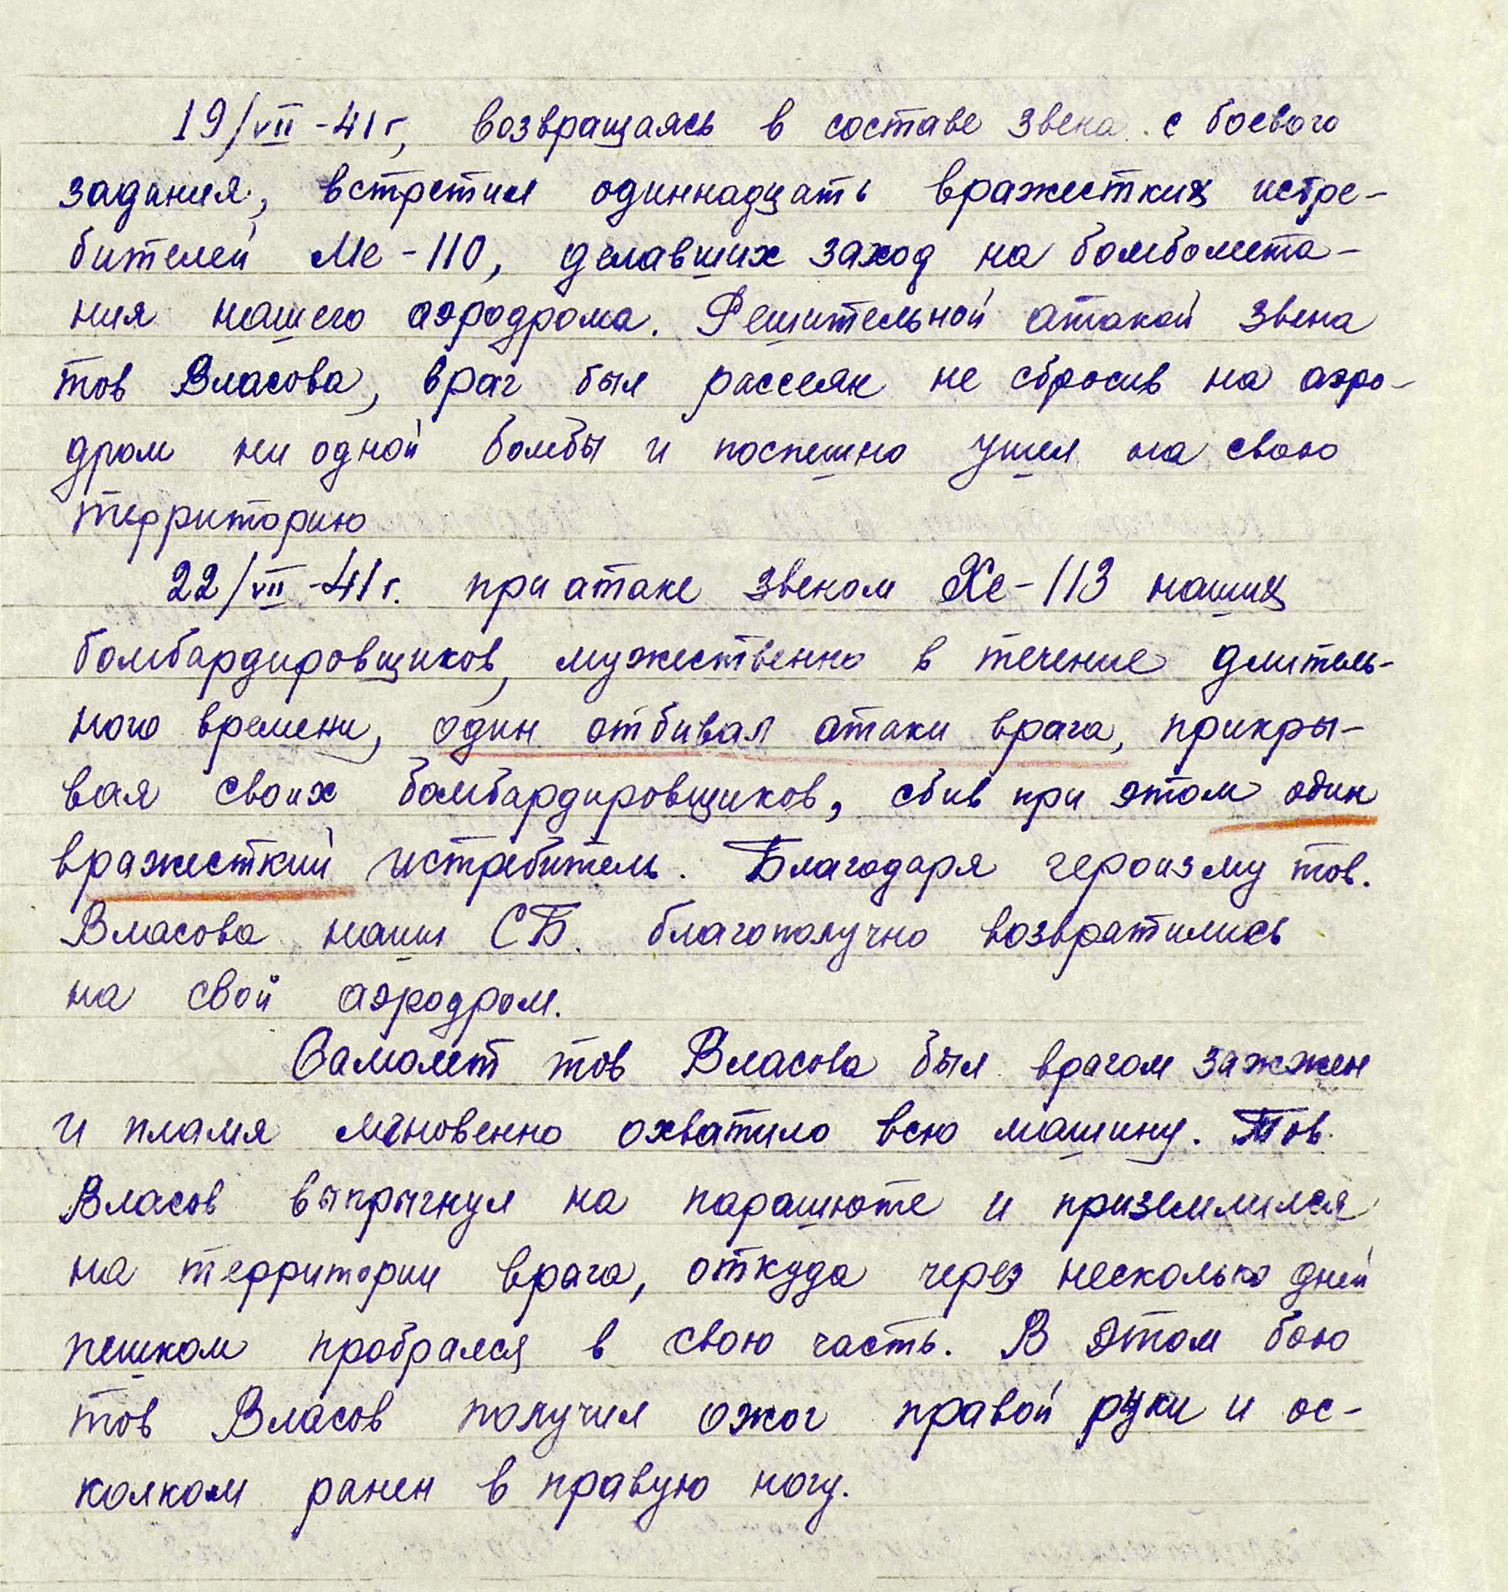 19/VII-41г, возвращаясь в составе звена с боевого
задания, встретил одиннадцать вражестких истре-
бителей Ме-110, делавших заход на бомбомета-
ния нашего аэродрома. Решительной атакой звена
тов Власова, враг был рассеян не сбросив на аэро-
дром ни одной бомбы и поспешно ушел на свою
территорию
22/VII-41г. при атаке звеном Хе-113 наших
бомбардировщиков, мужественно в течение длитель-
ного времени, один отбивал атаки врага, прикры-
вая своих бомбардировщиков, сбив при этом один
вражесткий истребитель. Благодаря героизму тов.
Власова наши СБ. благополучно возвратились
на свой аэродром.
Самолет тов Власова был врагом зажжен
и пламя мгновенно охватило всю машину. Тов.
Власов выпрыгнул на парашюте и приземлился
на территории врага, откуда через несколько дней
пешком пробрался в свою часть. В этом бою
тов Власов получил ожог правой руки и ос-
колком ранен в правую ногу.